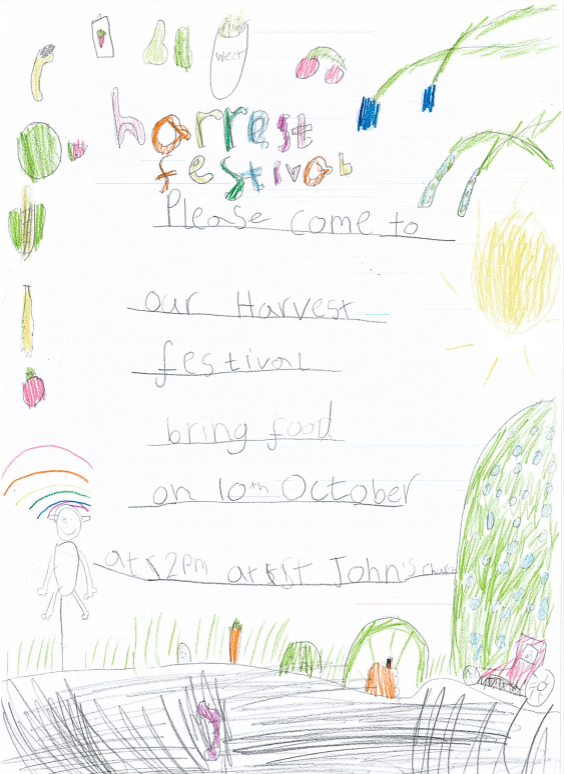 harrest
festival
Please come to
our Harvest
festival
bring food
on 10th October
at 2pm at St John's church